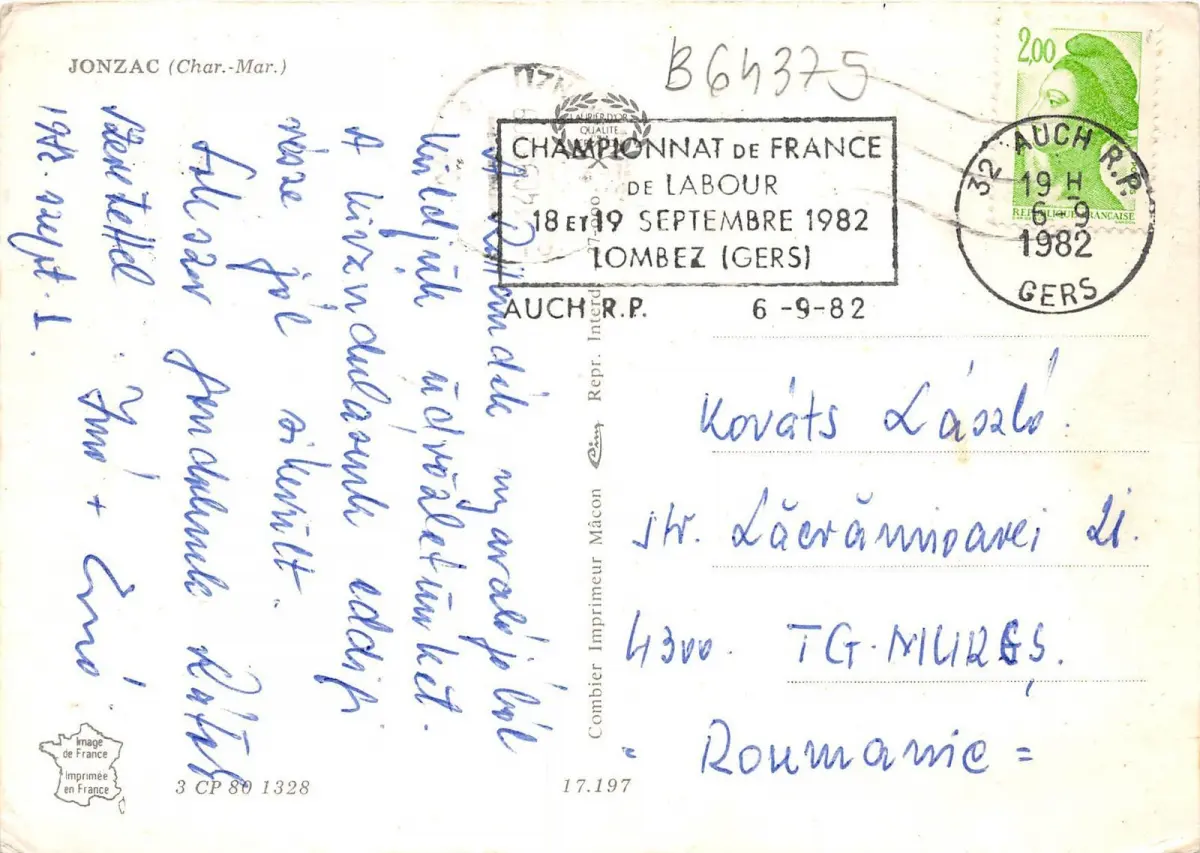 JONZAC (Char.-Mar.)
B64375
2,00
REPUBLIQUE FRANÇAISE
32 AUCH R.P.
19 H
6-9
1982
GERS
LAURIER D'OR
QUALITE
CHAMPIONNAT DE FRANCE
DE LABOUR
18 ET 19 SEPTEMBRE 1982
LOMBEZ (GERS)
AUCH R.P. 6-9-82
nyaralójából
küldjük üdvözletünket.
A kirándulásunk eddigi
része jól sikerült.
Sokszor gondolunk Rátok
Szeretettel
1982. szept. 1.
Imó + Emó
Combier Imprimeur Mâcon Cim Repr. Interd
Kováts László.
str. Lăcrămioarei 21.
4300. TG-MUREŞ.
= Roumanie =
Image
de France
Imprimée
en France
3 CP 80 1328
17.197